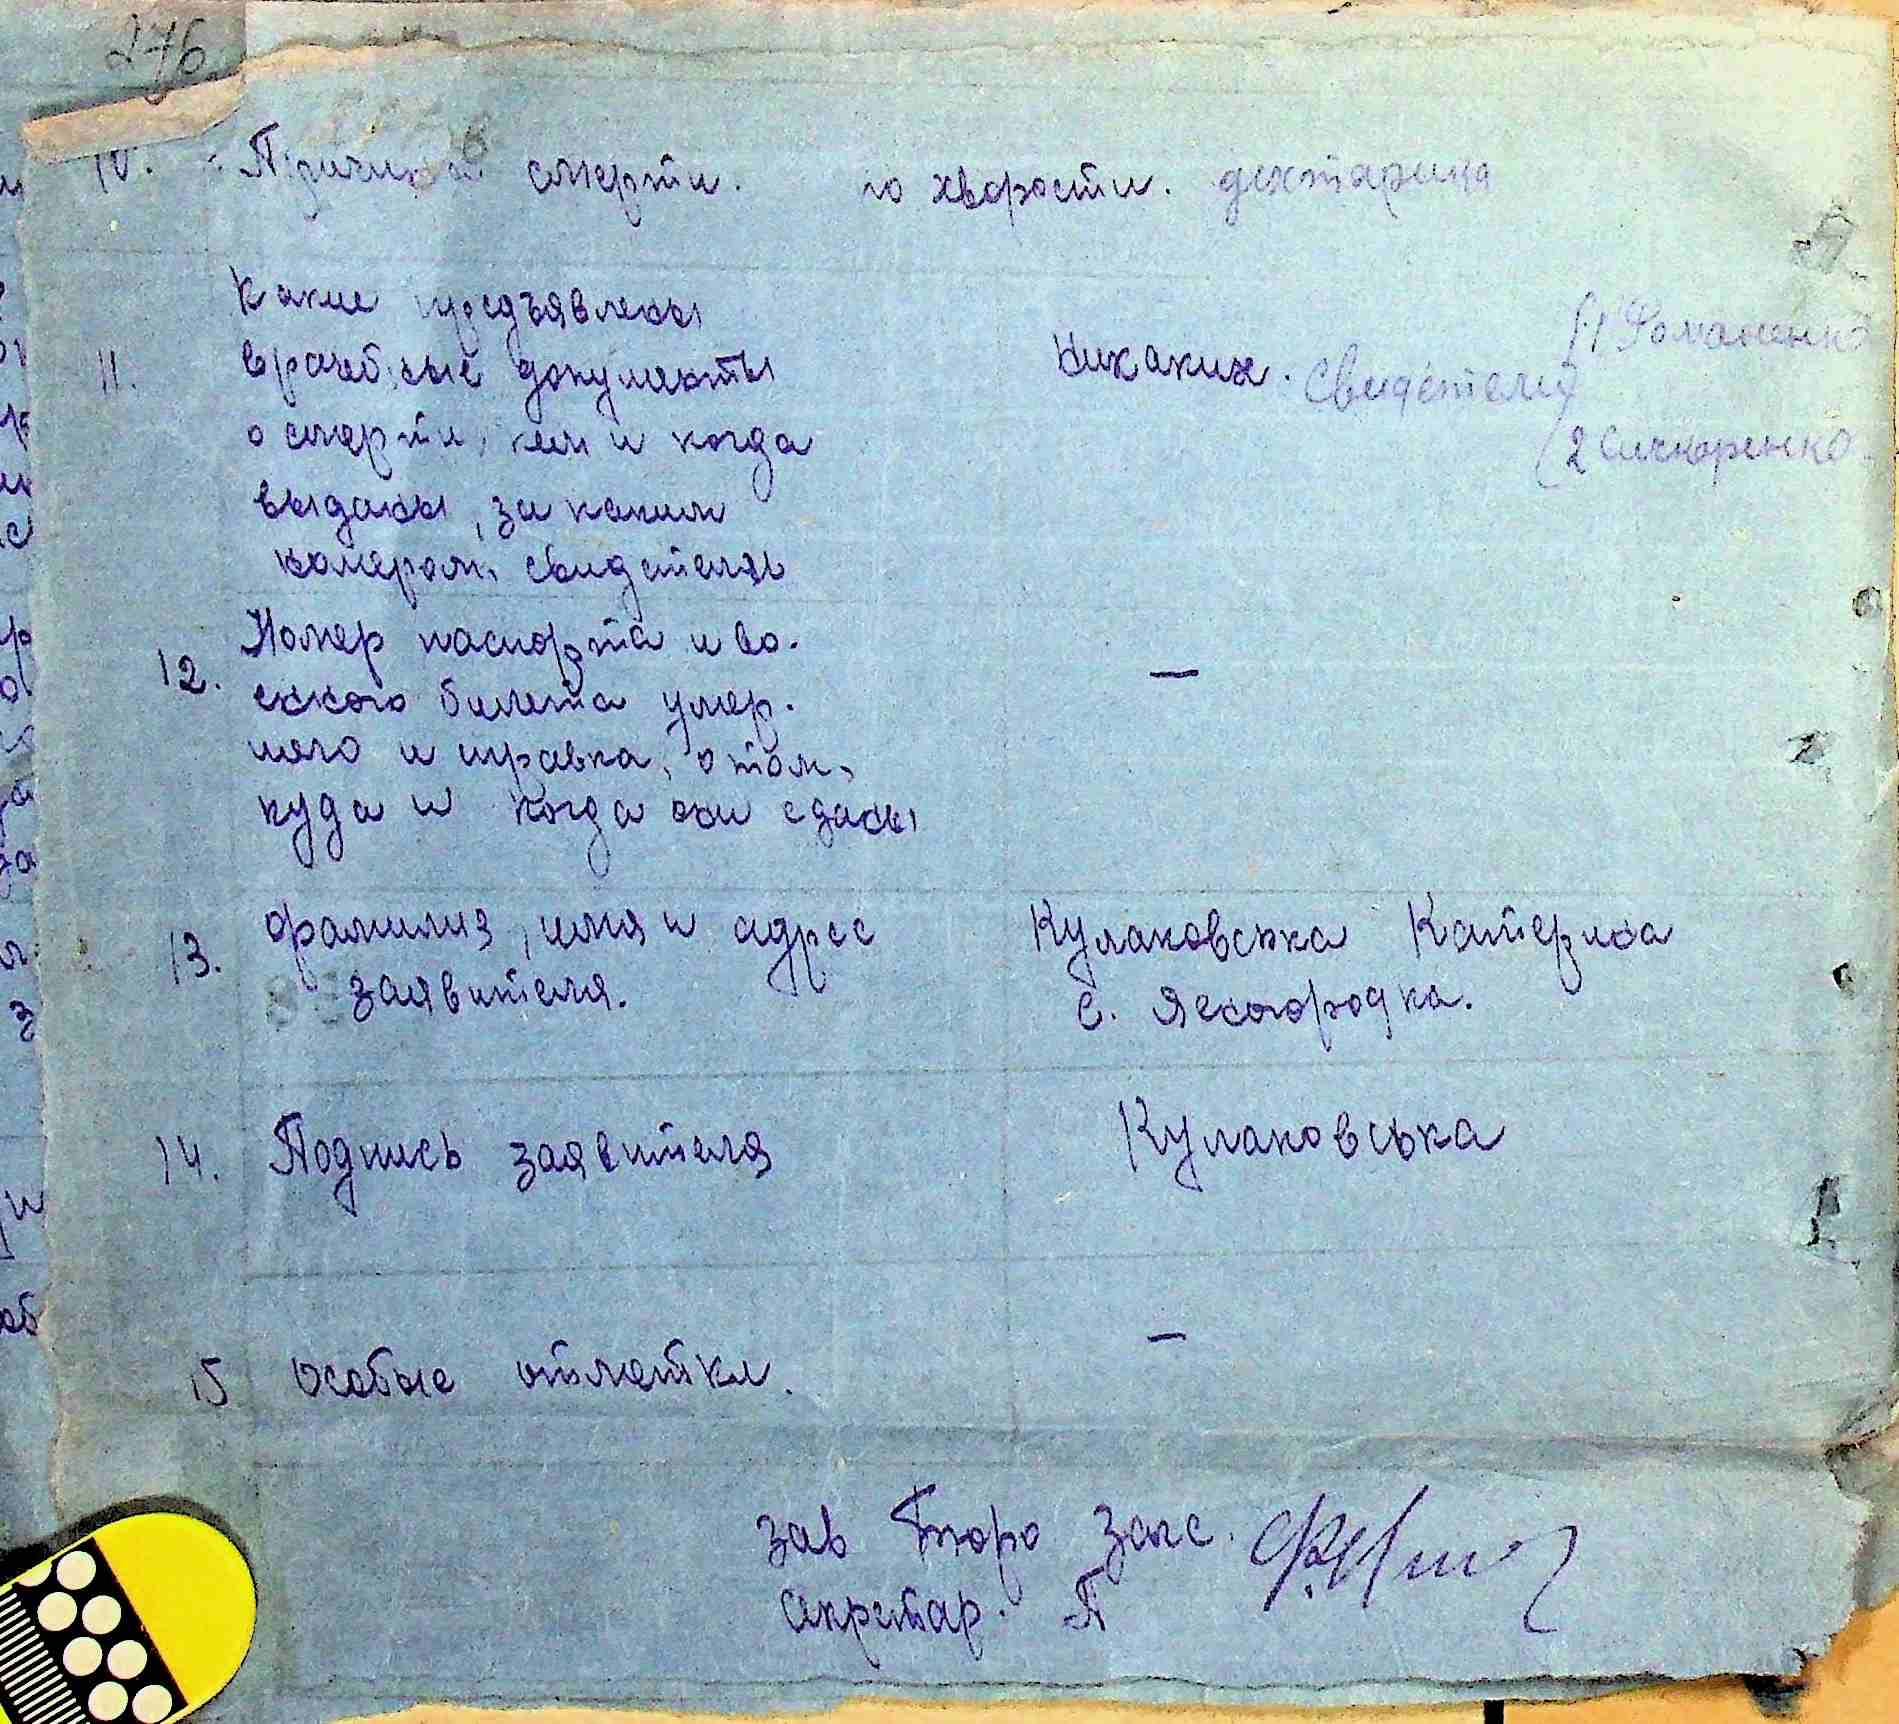 276
10. Причина смерти. по хворости. дехтарища
Какие предъявлены
11. врачебные документы
Никаких. Свидетели
1 Романенко
2 Сичкоренко
о смерти, кем и когда
выданы, за каким
номером. свидетель
Номер паспорта и во.
12. енного билета умер. —
шего и справка, о том,
куда и когда они сданы
13. фамилия, имя и адрес Кулаковська Катерина
заявителя. с. Ясногородка.
14. Подпись заявителя Кулаковська
15 Особые отметки. —
Зав Бюро Загс.
Секретар. П